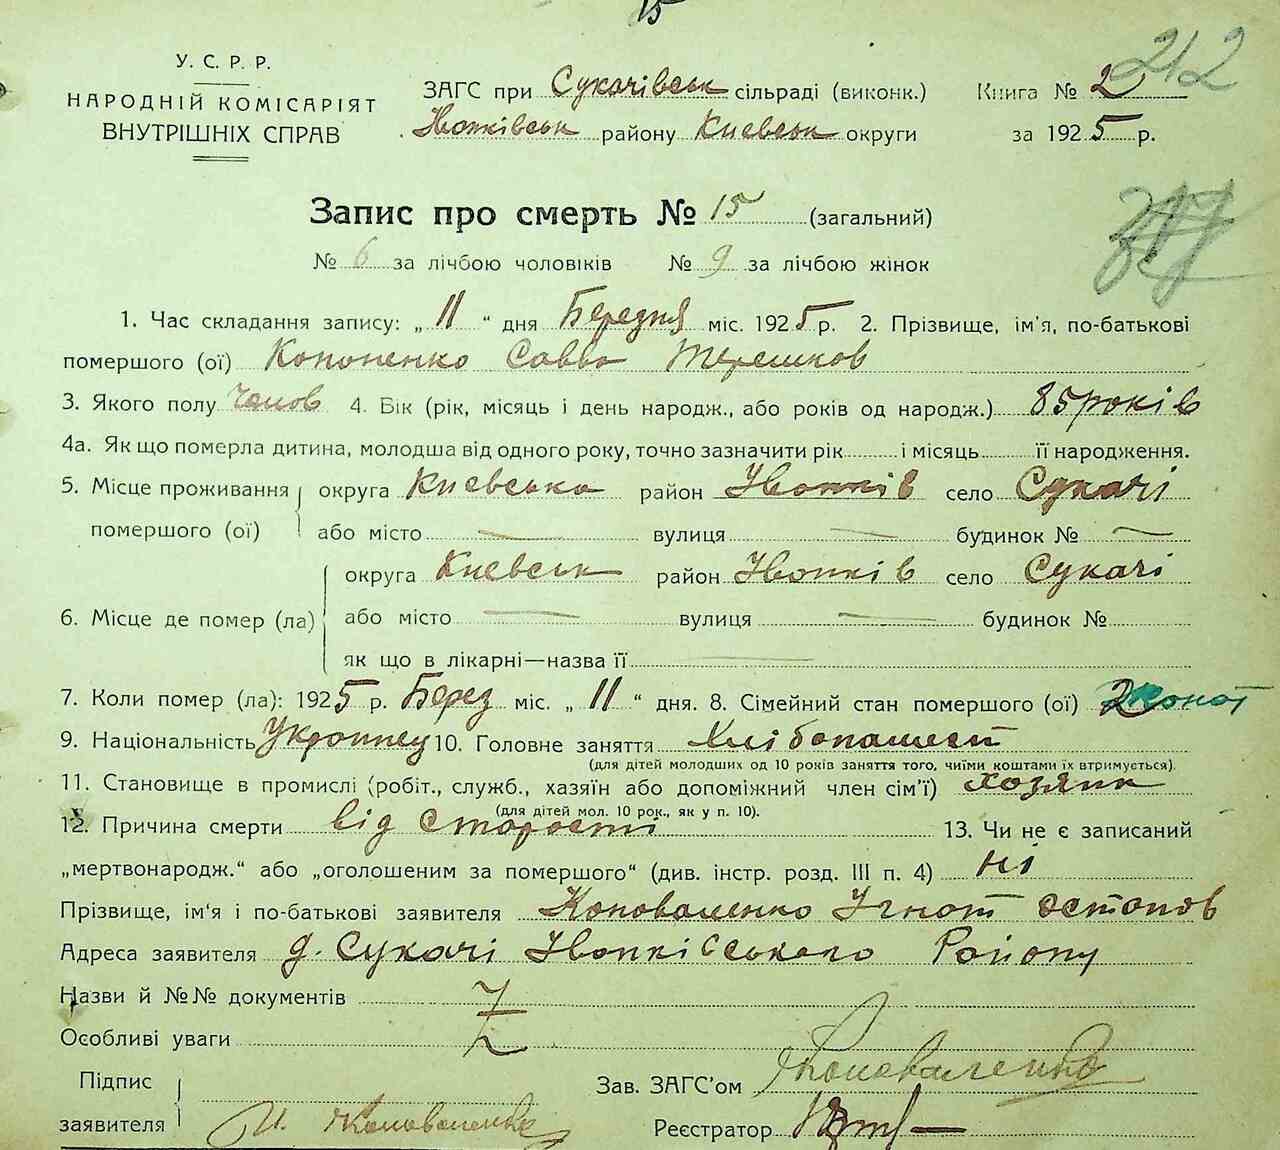 15
У. С. Р. Р.
НАРОДНІЙ КОМІСАРІЯТ
ВНУТРІШНІХ СПРАВ
ЗАГС при Сукачівськ сільраді (виконк.)
Книга № 2 212
районy Киевськ округи
за 1925 р.
Запис про смерть № 15 (загальний)
№ 6 за лічбою чоловіків № 9 за лічбою жінок
1. Час складання запису: „ 11 “ дня Березня міс. 1925 р. 2. Прізвище, ім'я, по-батькові
помершого (ої) Кононенко Савва Терешков
3. Якого полу Чолов 4. Вік (рік, місяць і день народж., або років од народж.) 85 років
4а. Як що померла дитина, молодша від одного року, точно зазначити рік і місяць її народження.
5. Місце проживання помершого (ої)
округа Киевська район село Сукачі
або місто — вулиця — будинок № —
6. Місце де помер (ла)
округа Киевськ район село Сукачі
або місто — вулиця — будинок №
як що в лікарні—назва її —
7. Коли помер (ла): 1925 р. Берез міс. „ 11 “ дня. 8. Сімейний стан помершого (ої)
9. Національність Украинец 10. Головне заняття Хлібопашест
(для дітей молодших од 10 років заняття того, чиїми коштами їх втримується).
11. Становище в промислі (робіт., служб., хазяїн або допоміжний член сім'ї) хозяин
(для дітей мол. 10 рок., як у п. 10).
12. Причина смерти від старости 13. Чи не є записаний
„мертвонародж.“ або „оголошеним за помершого“ (див. інстр. розд. III п. 4) ні
Прізвище, ім'я і по-батькові заявителя Коноваленко Игнат Остапов
Адреса заявителя д. Сукачі Району
Назви й №№ документів
Особливі уваги
Підпис заявителя И. Коноваленко
Зав. ЗАГС'ом Коноваленко
Реєстратор